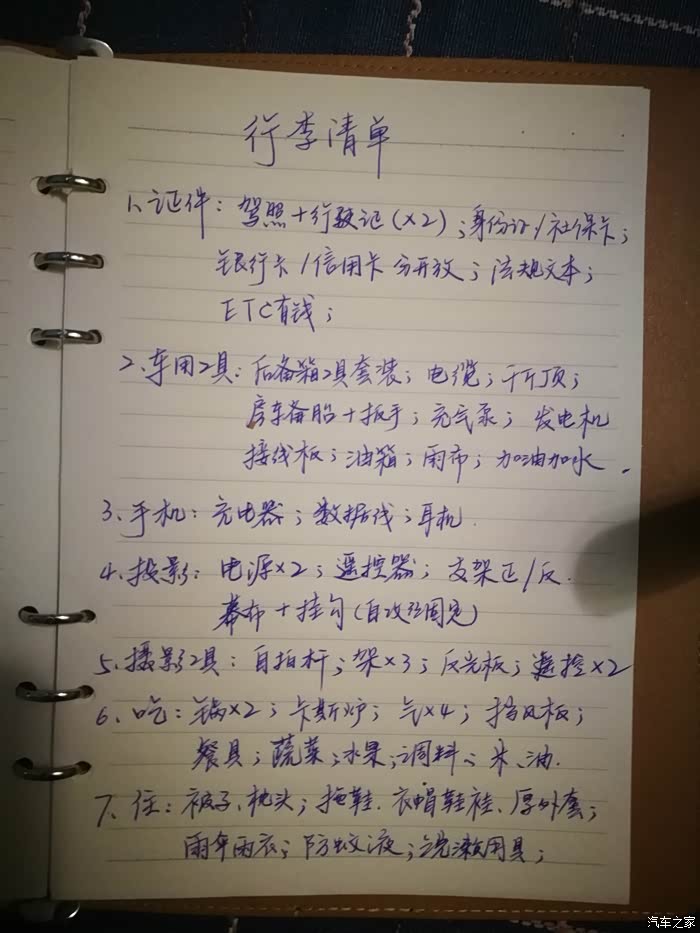 行李清单
1、证件：驾照+行驶证(×2)；身份证/社保卡；
银行卡/信用卡分开放；法规文本；
ETC有钱；
2、车用工具：后备箱工具套装；电缆；千斤顶；
房车备胎+扳手；充气泵；发电机
接线板；油箱；雨布；加油加水.
3、手机：充电器；数据线；耳机.
4、投影：电源×2；遥控器；支架正/反.
幕布+挂勾(自攻丝固定)
5、摄影工具：自拍杆；架×3；反光板；遥控×2
6、吃：锅×2；卡斯炉；气×4；挡风板；
餐具；蔬菜；水果；调料、米、油.
7、住：被子、枕头；拖鞋.衣帽鞋袜、厚外套；
雨伞雨衣；防蚊液；洗漱用具；
汽车之家